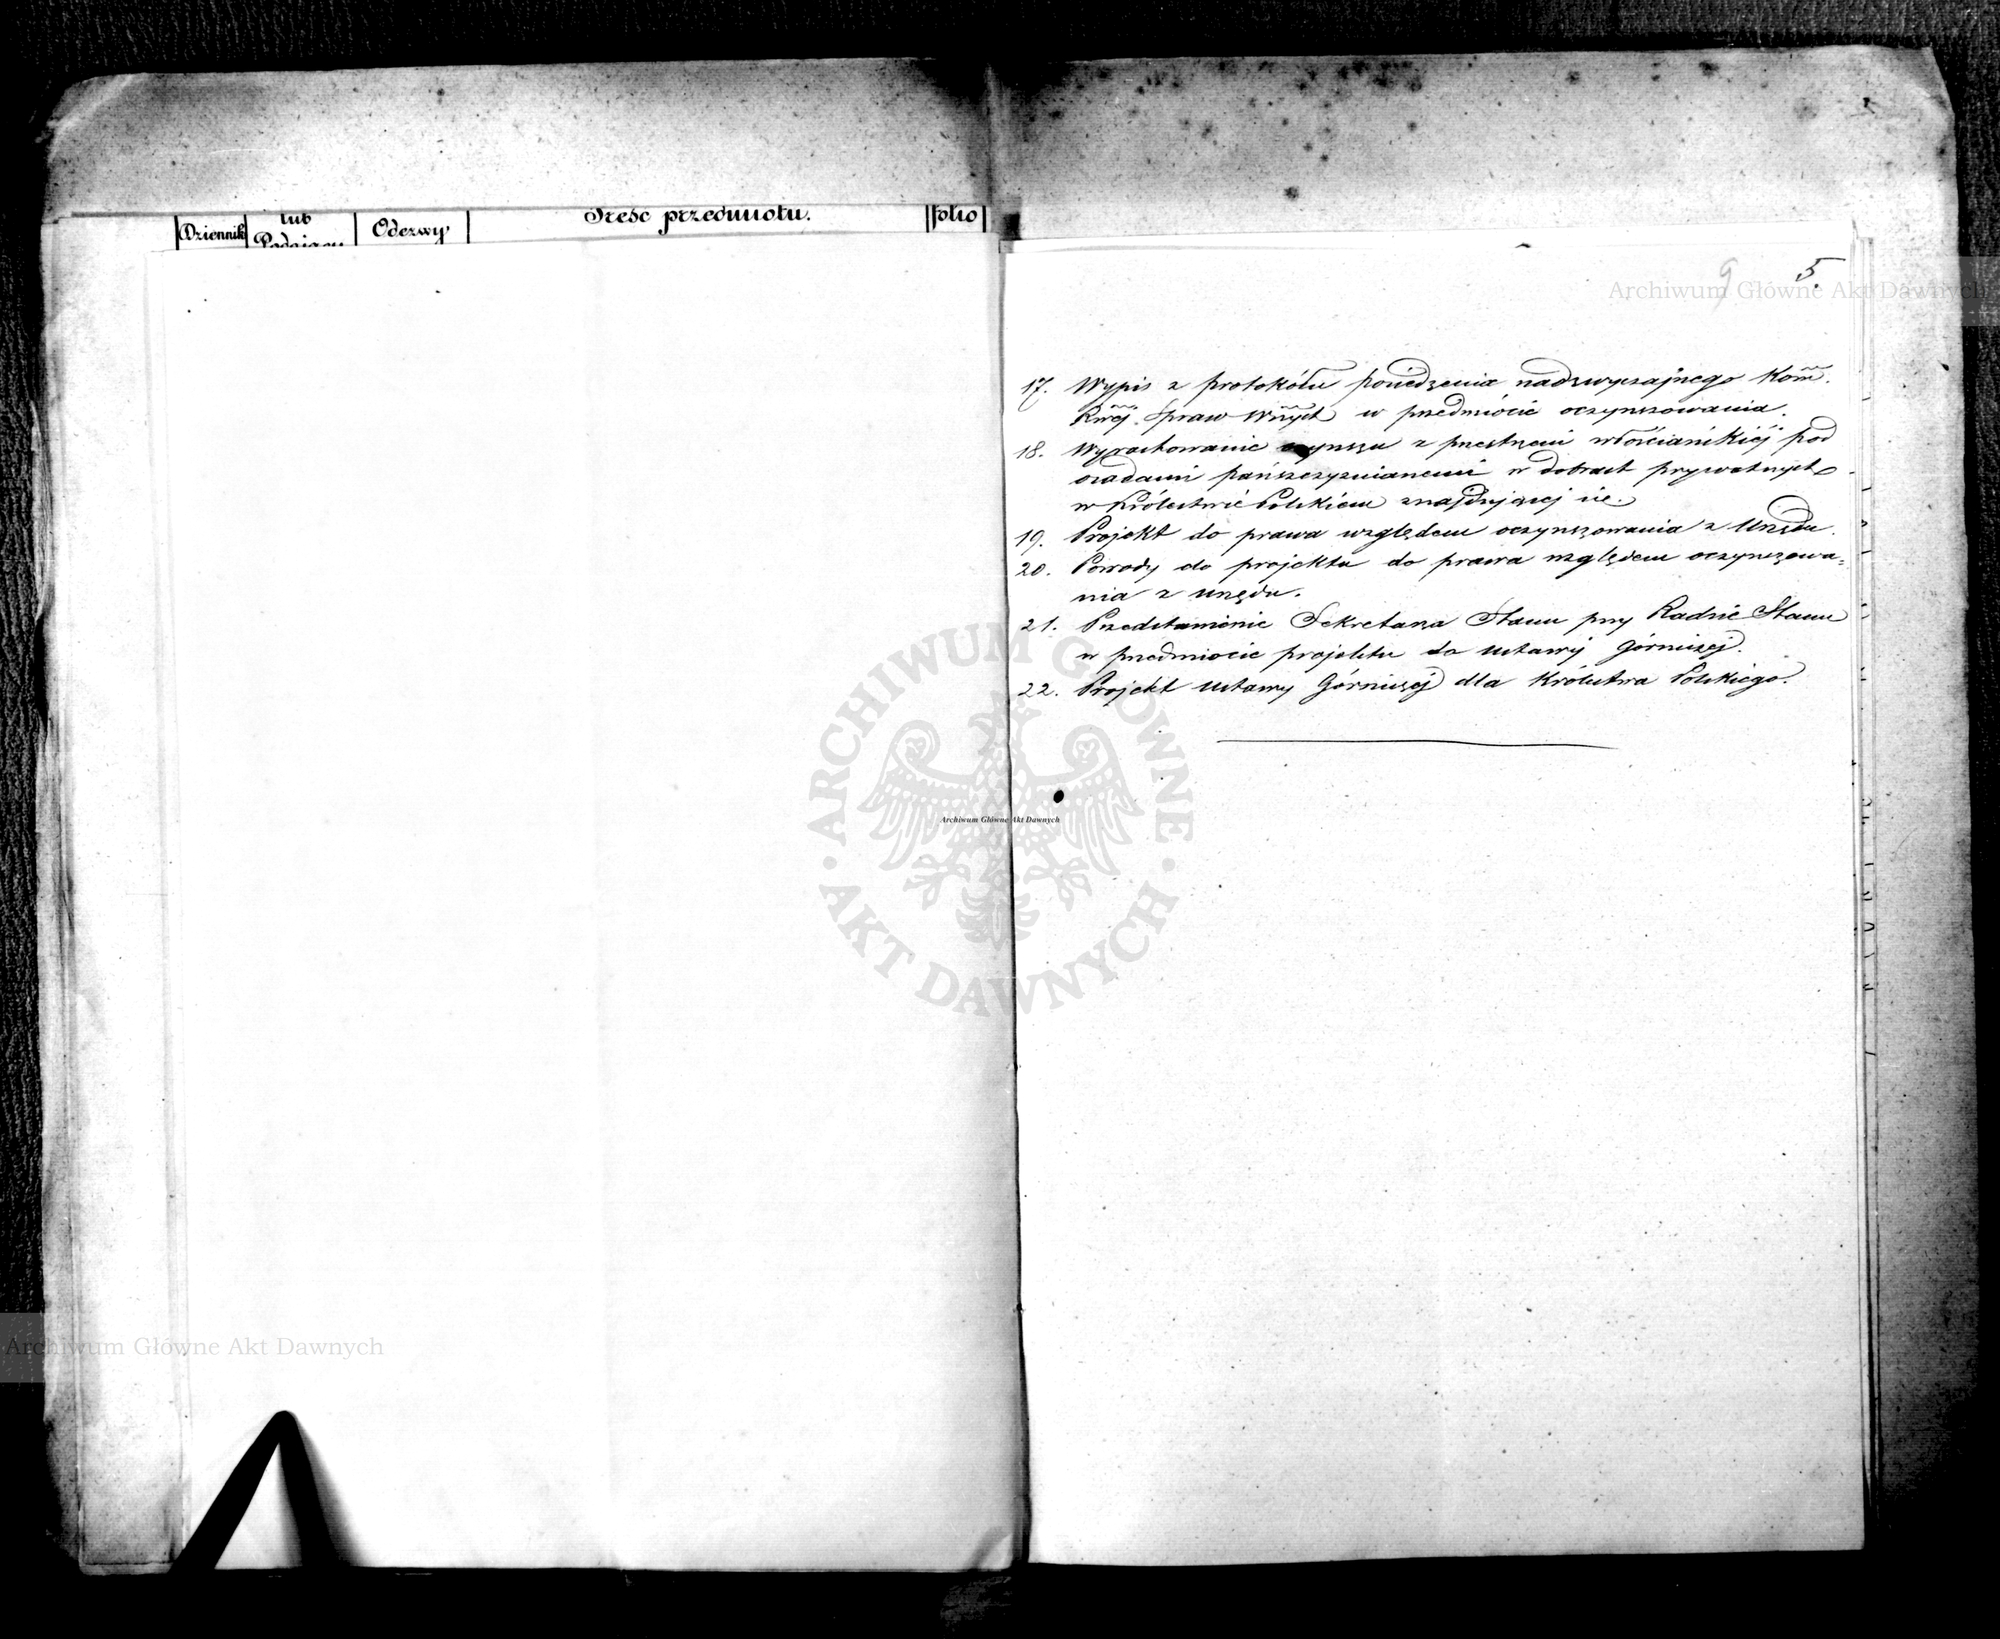 Dziennik
lub
Odezwy
Treść przedmiotu.
folio
9 5.
17. Wypis z protokółu posiedzenia nadzwyczajnego Kom̃.
Rwej. Spraw Wñych w przedmiócie oczynszowania.
18. Wyrachowanie czynszu z przestrzeni włościańskiéj pod
osadami pańszczyznianemi w dobrach prywatnych
w Królestwie Polskiém znajdującej sie.
19. Projekt do prawa względem oczynszowania z Urzędu.
20. Powody do projektu do prawa względem oczynszowa=
nia z urzędu.
21. Przedstawienie Sekretarza Stanu przy Radzie Stanu
w przedmiocie projektu do ustawy Górniczej.
22. Projekt ustawy Górniczej dla Królestwa Polskiego.
Archiwum Główne Akt Dawnych
ARCHIWUM GŁÓWNE
AKT DAWNYCH
Archiwum Główne Akt Dawnych
Archiwum Główne Akt Dawnych